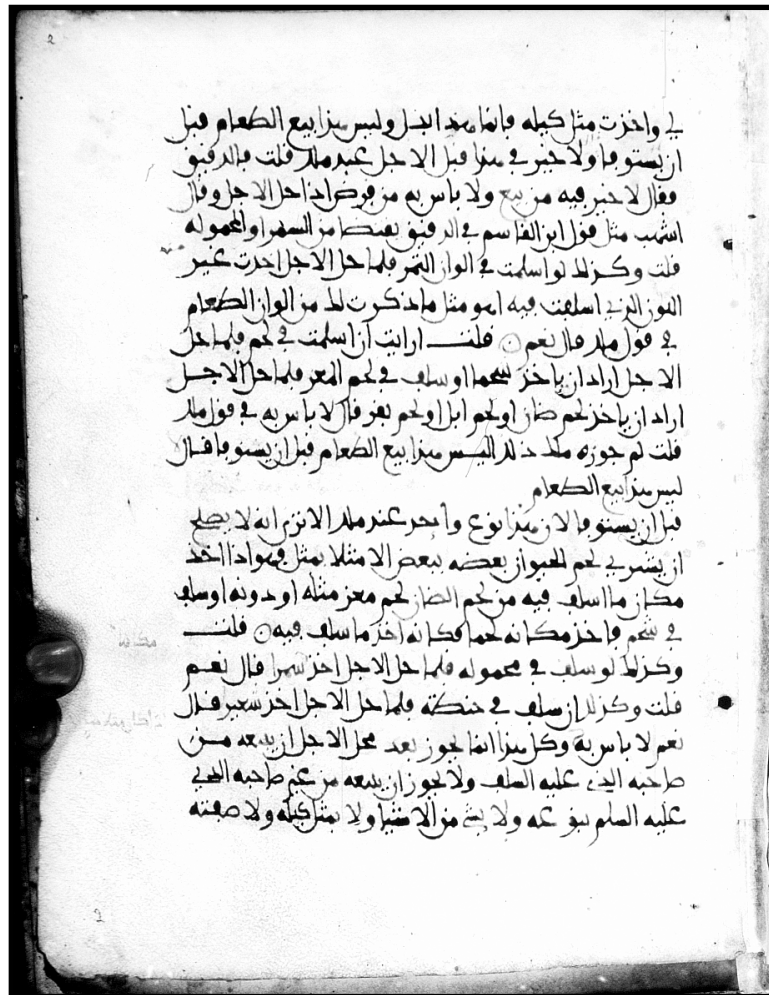 2
لي واخذت مثل كيله فانما هذا بدل وليس هذا بيع الطعام قبل
ان يستوفا ولا خير في هذا قبل الاجل عند ملك قلت فالدقيق
فقال لا خير فيه من بيع ولا باس به من قرض اذا حل الاجل وقال
اشهب مثل قول ابن القاسم في الدقيق بقتضا من السمرا والمحموله
قلت وكذلك لو اسلمت في الوان التمر فلما حل الاجل اخذت غير
اللون الذي اسلفت فيه اهو مثل ما ذكرت لك من الوان الطعام
في قول ملك قال نعم قلت ارايت ان اسلمت في لحم فلما حل
الاجل اراد ان ياخذ شحما او سلف في لحم المعز فلما حل الاجل
اراد ان ياخذ لحم ضان او لحم ابل او لحم بقر قال لا باس به في قول ملك
قلت لم جوزه ملك ذلك اليس هذا بيع الطعام قبل ان يستوفا قال
ليس هذا بيع الطعام
قبل ان يستوفا لان هذا نوع واحد عند ملك الا ترى انه لا يصلح
ان يشتري لحم الحيوان بعضه ببعض الا مثلا بمثل فهو اذا اخذ
مكان ما اسلف فيه من لحم الضان لحم معز مثله او دونه او سلف
في شحم فاخذ مكانه لحما فكانه اخذ ما سلف فيه قلت
وكذلك لو سلف في محموله فلما حل الاجل اخذ سمرا قال نعم
قلت وكذلك ان سلف في حنطة فلما حل الاجل اخذ شعيرا قال
نعم لا باس به وكل هذا انما يجوز بعد محل الاجل ان يبيعه من
صاحبه الذي عليه السلف ولا يجوز ان يبيعه من غير صاحبه الذي
عليه السلم بنوعه ولا بشي من الاشيا ولا بمثل كيله ولا صفته
2